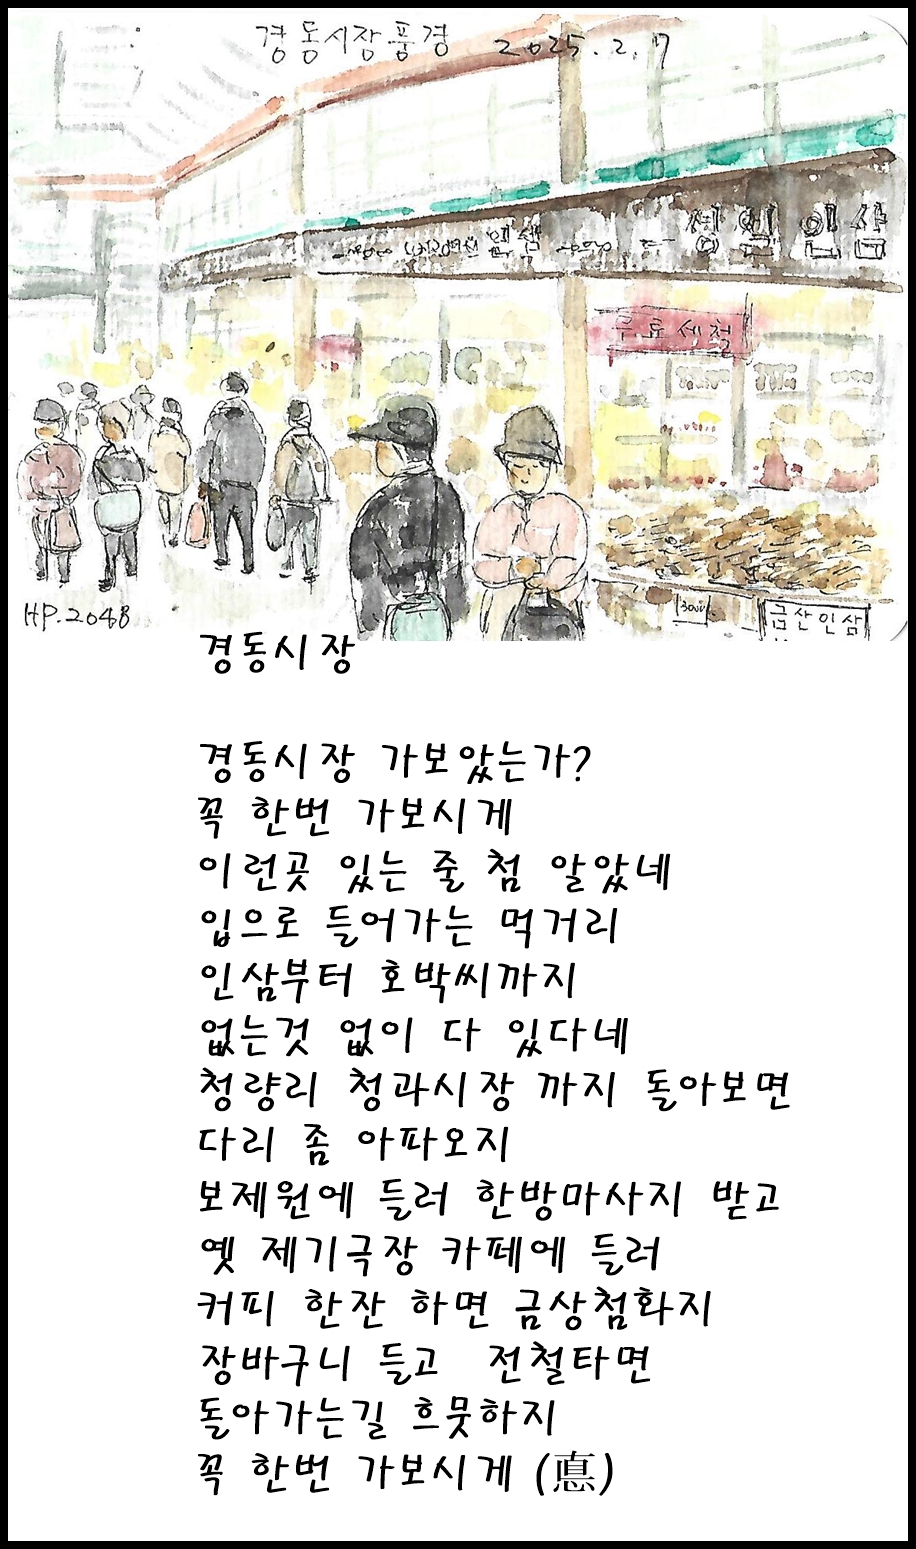 경동시장풍경 2025.2.7
인삼
세일 인삼
무료세철
30000
금산인삼
HP.2048
경동시장
경동시장 가보았는가?
꼭 한번 가보시게
이런곳 있는 줄 첨 알았네
입으로 들어가는 먹거리
인삼부터 호박씨까지
없는것 없이 다 있다네
청량리 청과시장 까지 돌아보면
다리 좀 아파오지
보제원에 들러 한방마사지 받고
옛 제기극장 카페에 들러
커피 한잔 하면 금상첨화지
장바구니 들고 전철타면
돌아가는길 흐뭇하지
꼭 한번 가보시게 (悳)